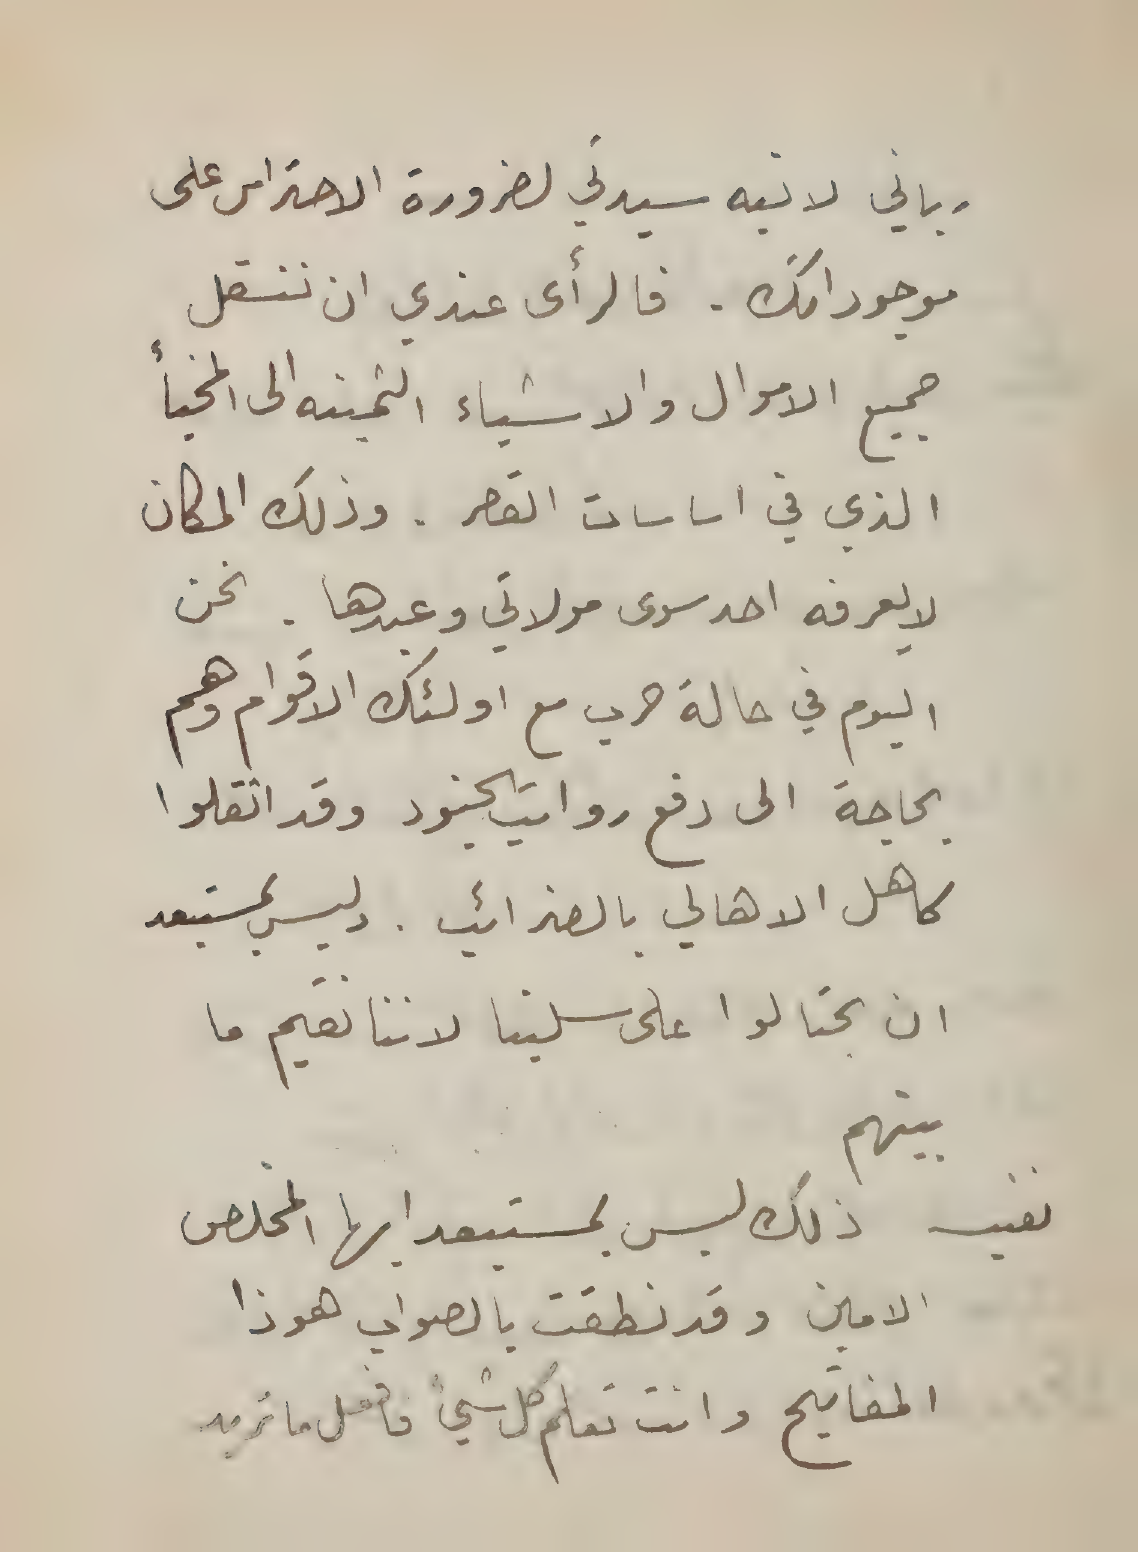 رباني لانبه سيدتي لضرورة الاحتراس على
موجوداتك . فالرأى عندي ان ننتقل
جميع الاموال والاشياء الثمينه الى المخبأ
الذي في اساسات القصر . وذلك المكان
لا يعرفه احد سوى مولاتي وعبدها . نحن
اليوم في حالة حرب مع اولئك الاقوام وهم
بحاجة الى دفع رواتب الجنود وقد اثقلوا
كاهل الاهالي بالضرائب . وليس بمستبعد
ان يحتالوا على سلبنا لاننا نقيم ما
بينهم
نفيسه ذلك ليس بمستبعد ايها المخلص
الامين وقد نطقت بالصواب هوذا
المفاتيح وانت تعلم كل شيئ فافعل ما تريد